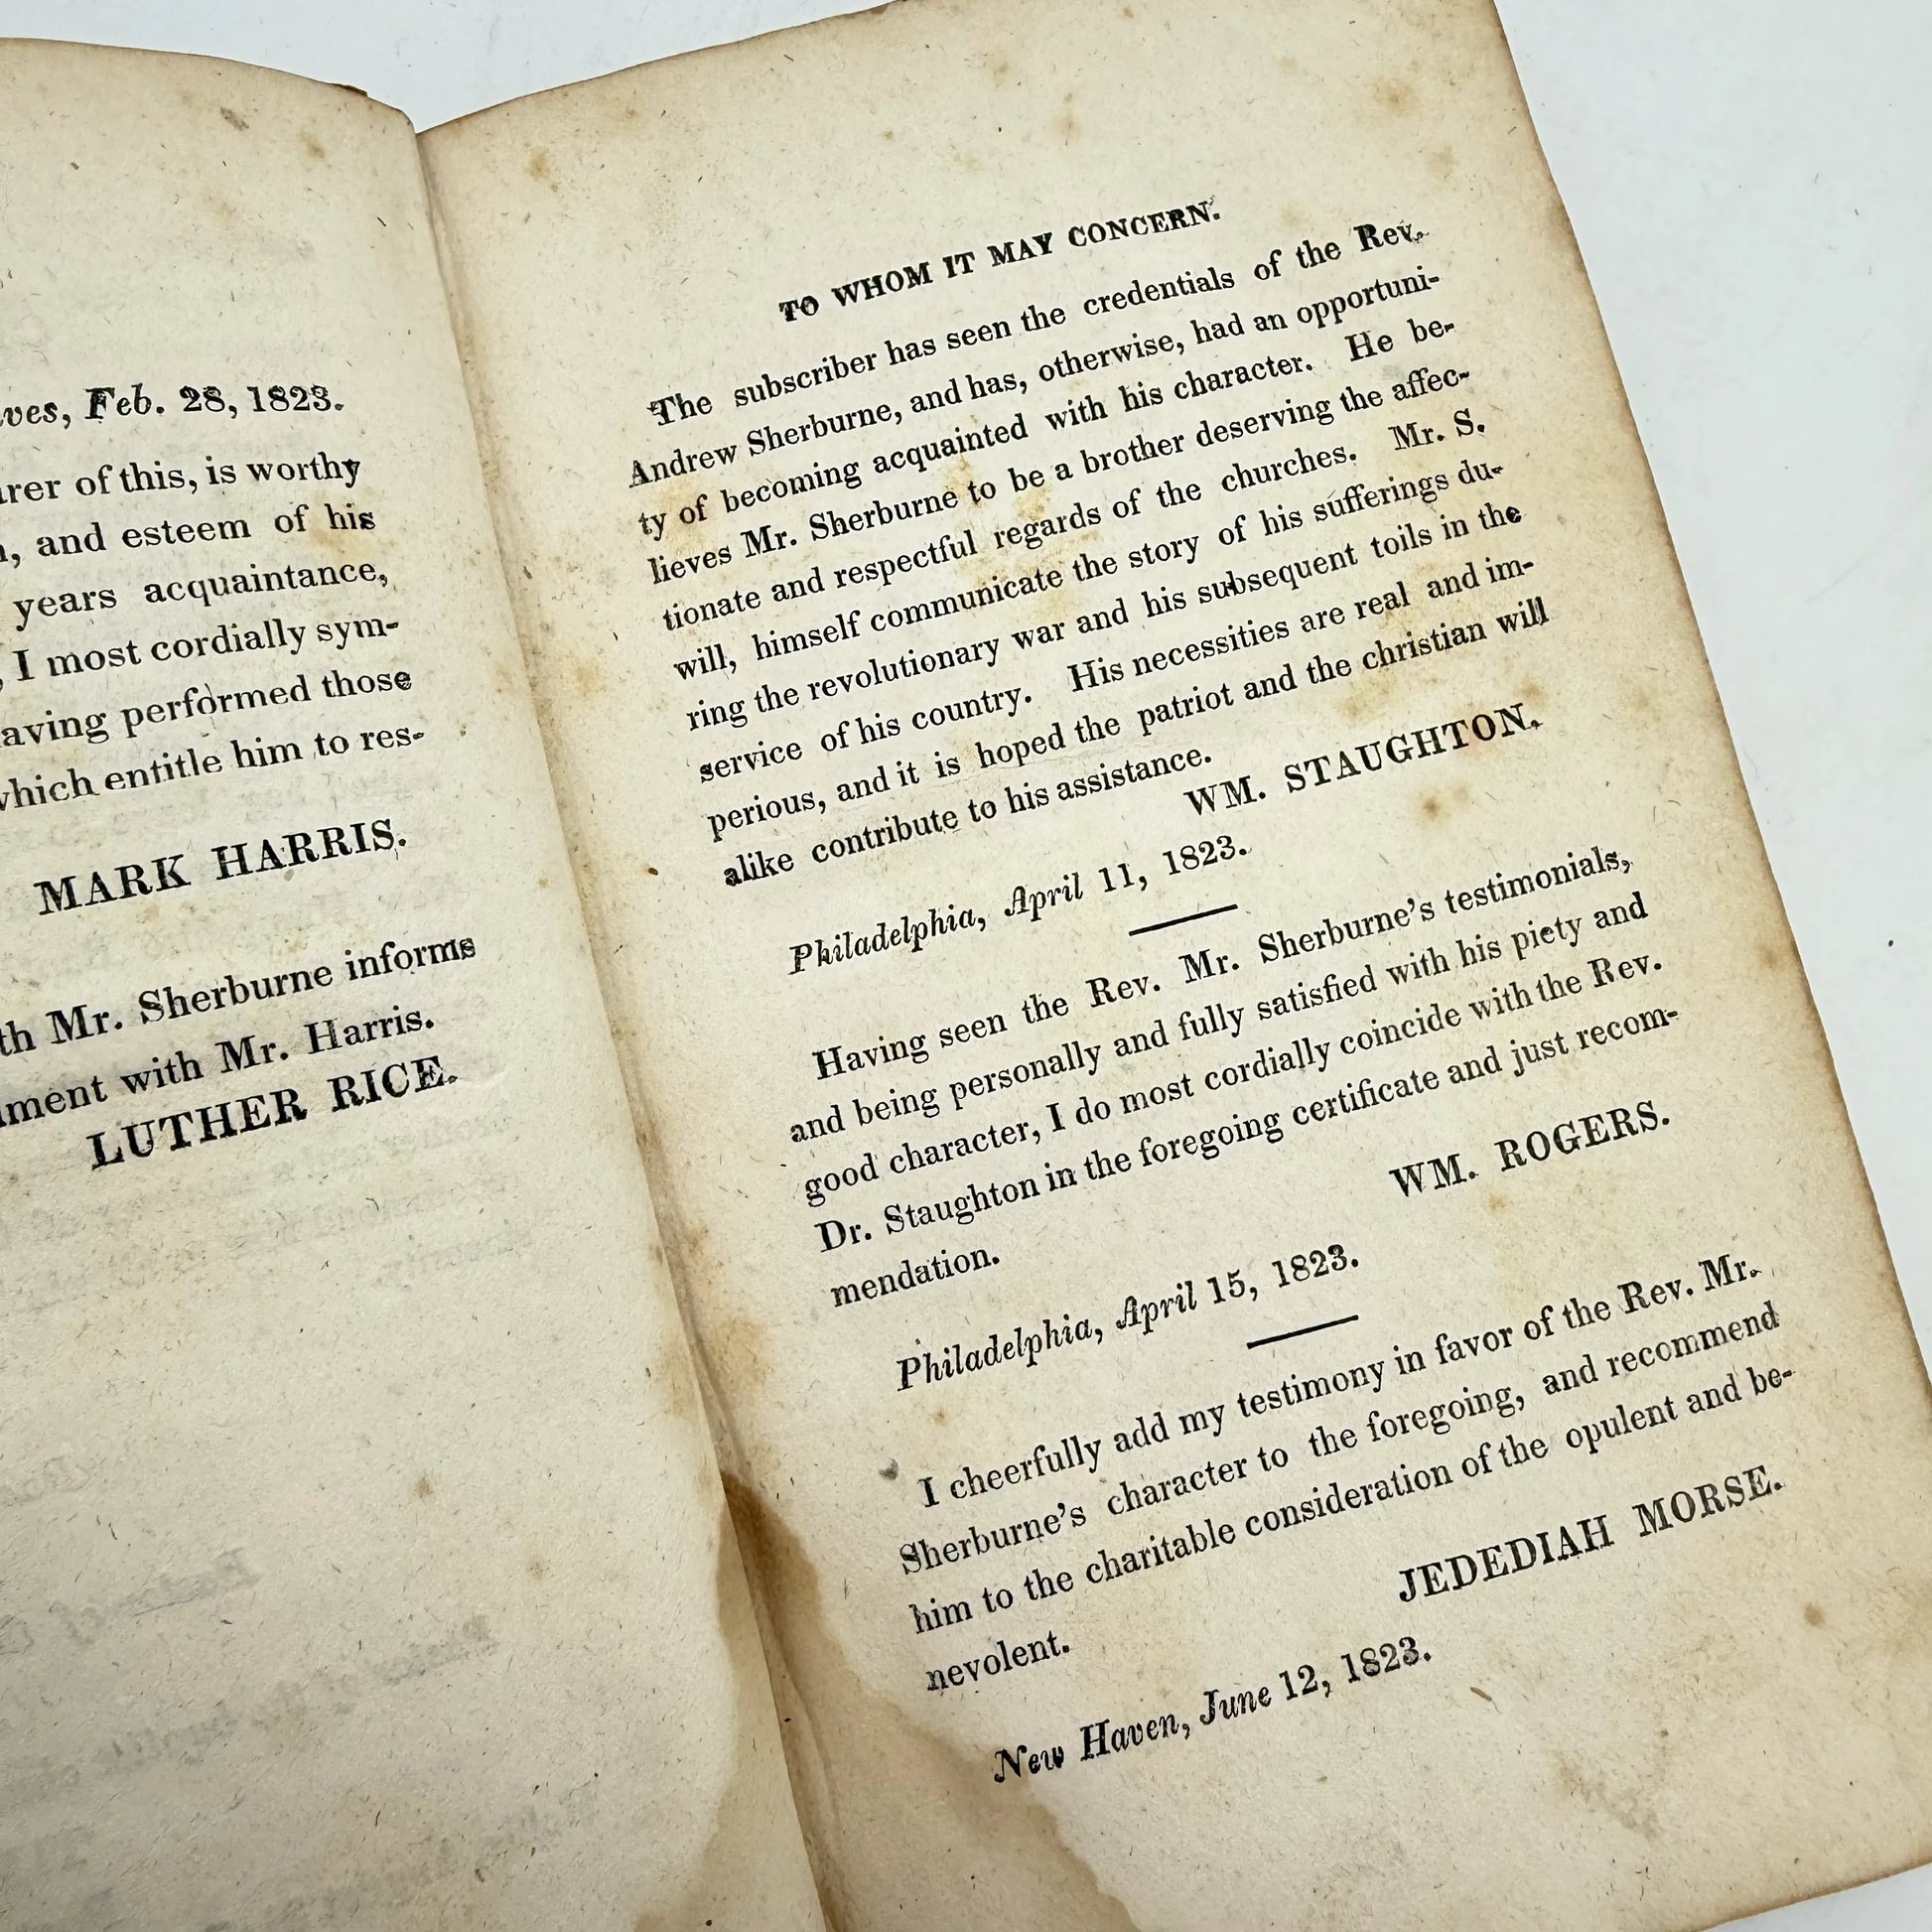 Feb. 28, 1823.
of this, is worthy
and esteem of his
years acquaintance,
I most cordially sym-
performed those
which entitle him to res-
MARK HARRIS.
Mr. Sherburne informs
with Mr. Harris.
LUTHER RICE.
TO WHOM IT MAY CONCERN.
The subscriber has seen the credentials of the Rev.
Andrew Sherburne, and has, otherwise, had an opportuni-
ty of becoming acquainted with his character. He be-
lieves Mr. Sherburne to be a brother deserving the affec-
tionate and respectful regards of the churches. Mr. S.
will, himself communicate the story of his sufferings du-
ring the revolutionary war and his subsequent toils in the
service of his country. His necessities are real and im-
perious, and it is hoped the patriot and the christian will
alike contribute to his assistance.
WM. STAUGHTON.
Philadelphia, April 11, 1823.
Having seen the Rev. Mr. Sherburne's testimonials,
and being personally and fully satisfied with his piety and
good character, I do most cordially coincide with the Rev.
Dr. Staughton in the foregoing certificate and just recom-
mendation.
WM. ROGERS.
Philadelphia, April 15, 1823.
I cheerfully add my testimony in favor of the Rev. Mr.
Sherburne's character to the foregoing, and recommend
him to the charitable consideration of the opulent and be-
nevolent.
JEDEDIAH MORSE.
New Haven, June 12, 1823.